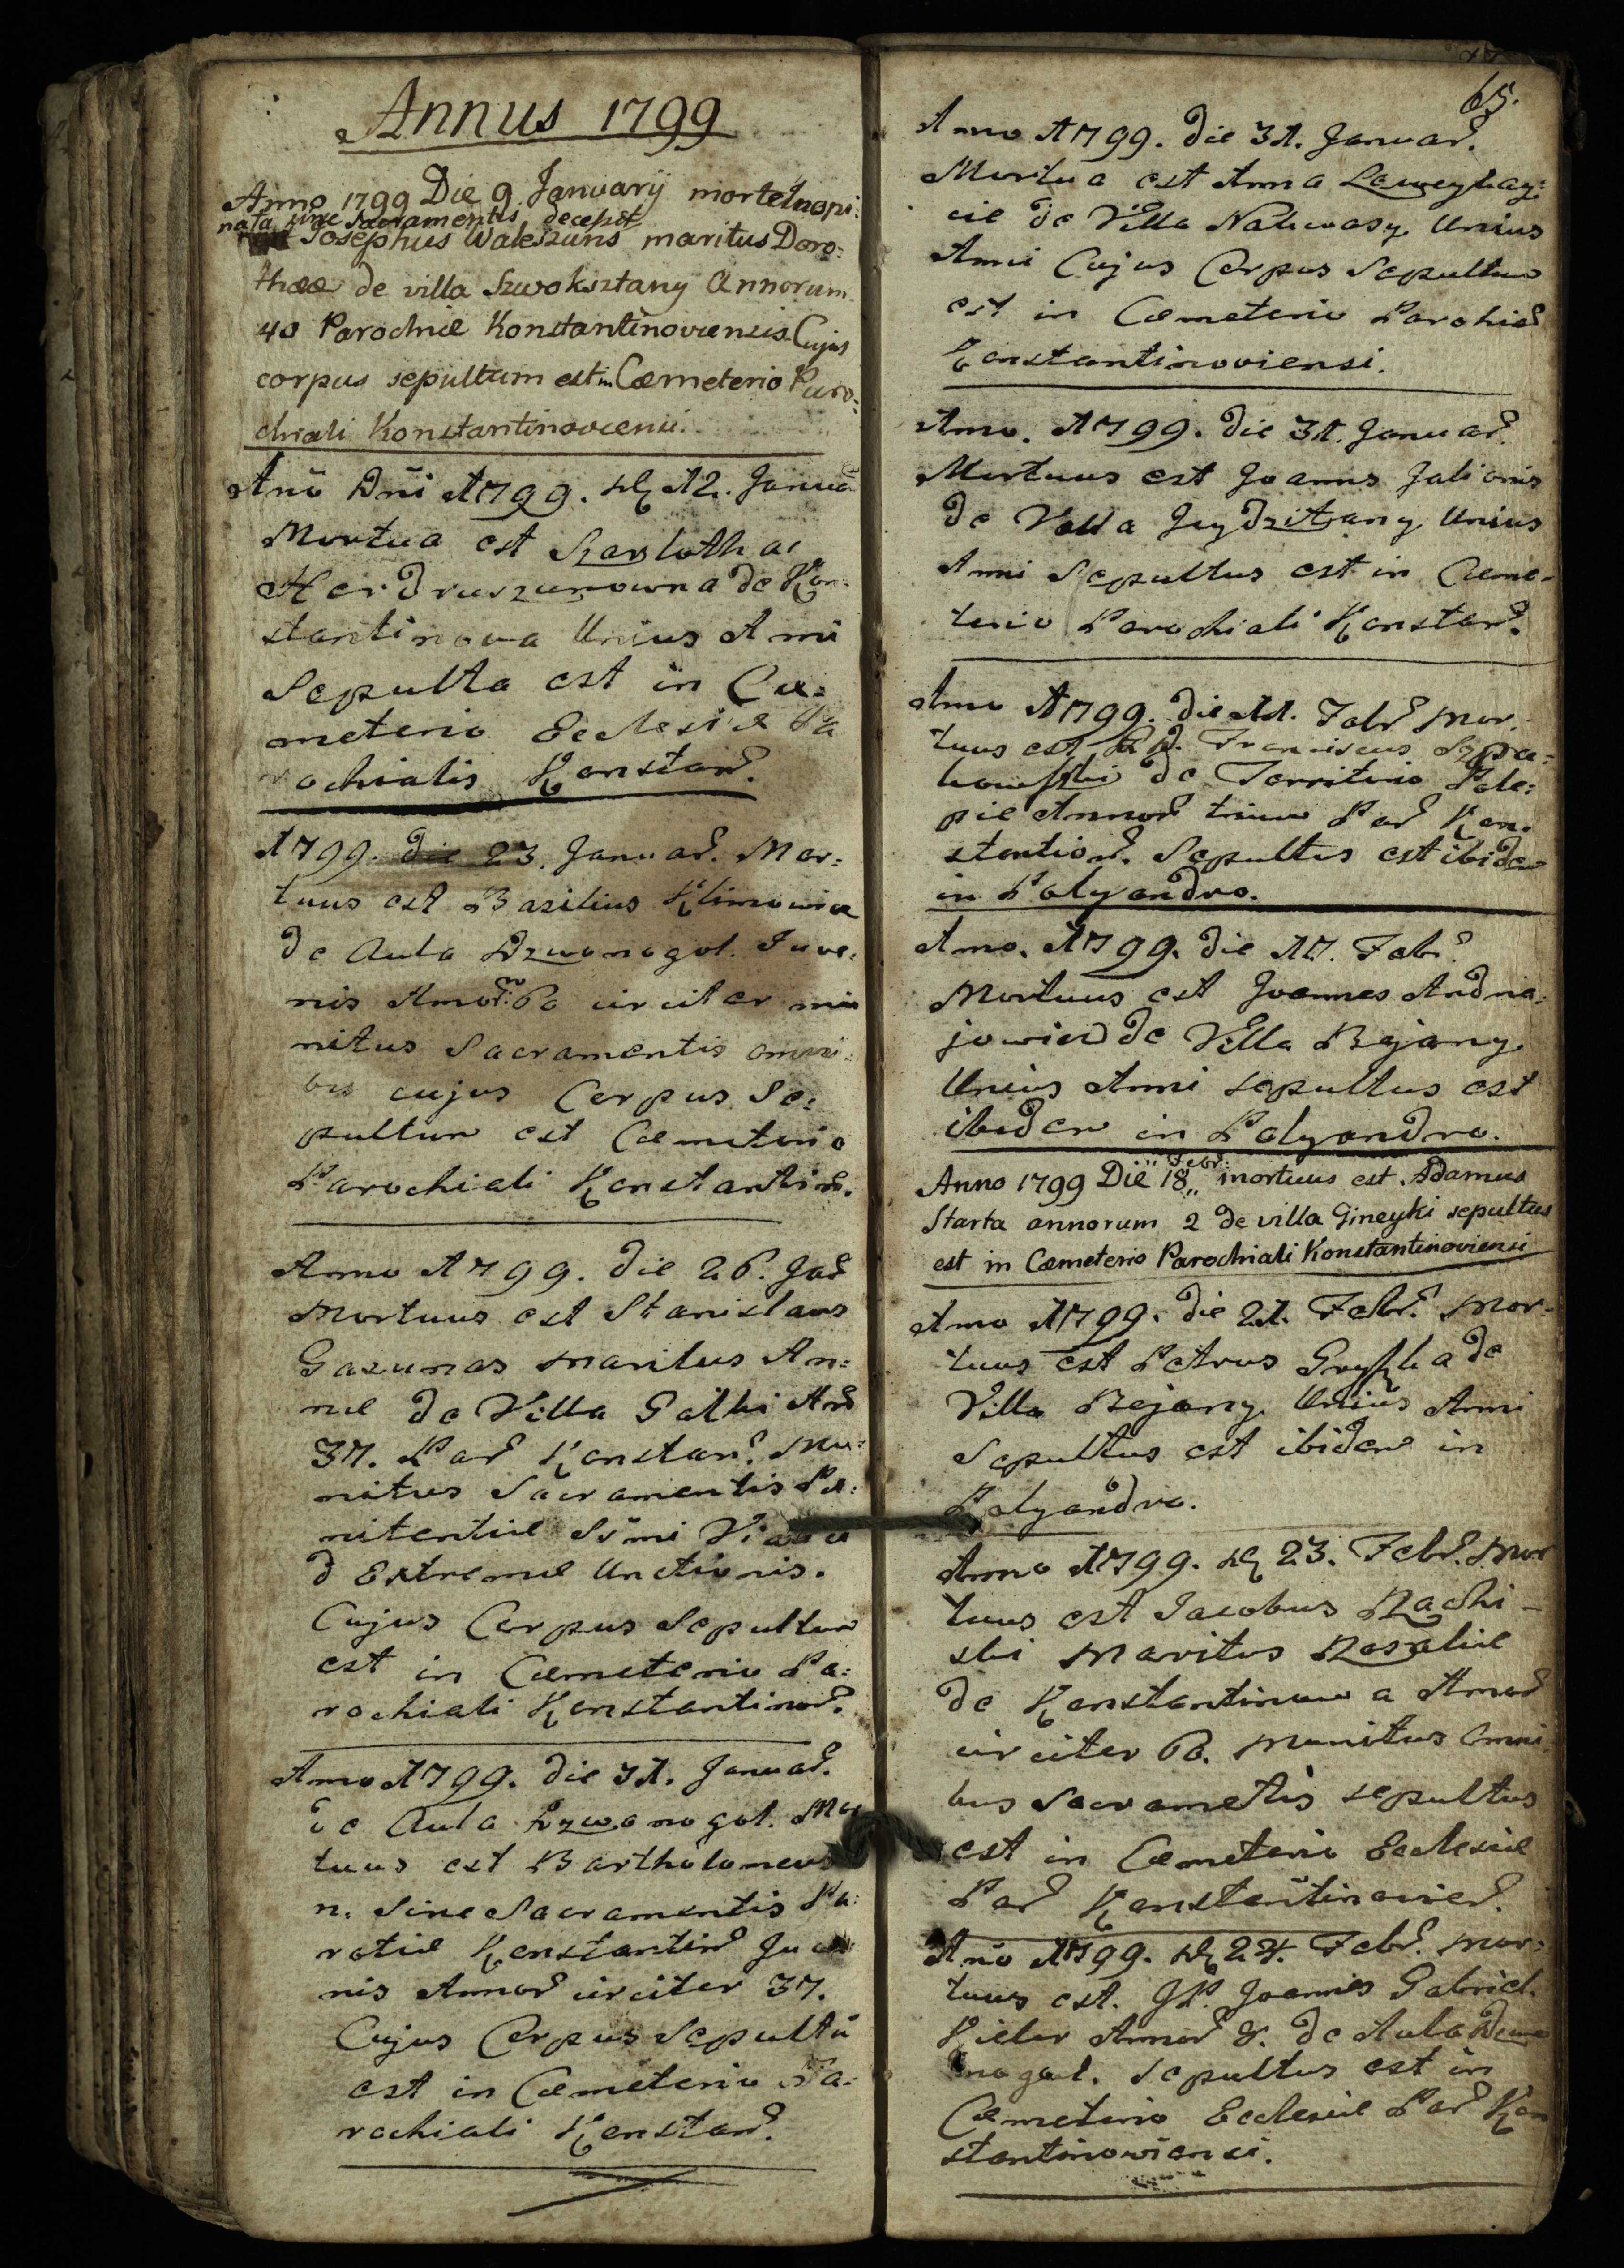 Annus 1799
Anno 1799 Die 9 Januarij morte Inopi:
nata sine Sacramentis decessit
Josephus Waleszuns maritus Doro:
theæ de villa Szwoksztany Annorum
40 Parochiæ Konstantinoviensis Cujus
corpus sepultum est in Cæmeterio Paro:
chiali Konstantinoviensi.
Año Dñi 1799. 12. Janua
Mortua est Szarlotha
Herdruszunowna de Kon:
stantinova Unius Anni
Sepulta est in Cæ:
meterio Ecclesiæ Pa
rochialis Konstan.
1799. die 23. Januar. Mor:
tuus est Basilius Klimowicz
de Aula Dzwonogol. Juve:
nis Annor. 60 circiter mu
nitus Sacramentis omni:
bus cujus Corpus Se:
pultum est Cæmeterio
Parochiali Konstantin.
Anno 1799. die 26. Jan
Mortuus est Stanislaus
Gazunas Maritus An:
næ de Villa Gailki An
37. Par Konstan. Mu:
nitus Sacramentis Pæ:
nitentiæ Ssmi Viatici
& Extremæ Unctionis.
Cujus Corpus Sepultum
est in Cæmeterio Pa:
rochiali Konstantinov.
Anno 1799. die 31. Januar.
de Aula Dzwonogol. Mor
tuus est Bartholomeus
n. Sine Sacramentis Pa:
rotiæ Konstantin Juve
nis Annor circiter 37.
Cujus Corpus Sepultũ
est in Cæmeterio Pa:
rochiali Konstan.
65.
Anno 1799. die 31. Januar.
Mortua est Anna
de Villa Nalewasy Unius
Anni Cujus Corpus Sepultum
est in Cæmeterio Parohia
Konstantinoviensi.
Anno. 1799. die 31. Januar.
Mortuus est Joanns Jalionis
de Villa Unius
Anni Sepultus est in Cæme-
terio Parochiali Konstan.
Anno 1799. die 11. Febr Mor:
tuus est Franciscus Szpa:
kowski de Territorio Pole:
piæ Annor trium Par Kon.
stantion. Sepultus est ibidem
in Polyandro.
Anno. 1799. die 17. Febr.
Mortuus est Joannes Andria:
jowicz de Villa Bejany
Unius Anni sepultus est
ibidem in Polyandro.
Anno 1799 Die 18 Febr: mortuus est Adamus
Starta annorum 2 de villa Gineyki sepultus
est in Cæmeterio Parochiali Konstantinoviensi
Anno 1799. die 21. Febr. Mor-
tuus est Petrus Gryszka de
Villa Bejany Unius Anni
Sepultus est ibidem in
Polyandro.
Anno 1799. 23. Febr. Mor
tuus est Jacobus Rachi-
ski Maritus Rosaliæ
de Konstantinowa Annor
circiter 60. Munitus Omni
bus Sacrametis sepultus
est in Cæmeterio Ecclesiæ
Par Konstantinovien.
Anno 1799. 24. Febr. Mor:
tuus est. Joannes Gabriel.
Annor 8. de Aula Dzwo
nogol. Sepultus est in
Cæmeterio Ecclesiæ Par Kon
stantinoviensi.